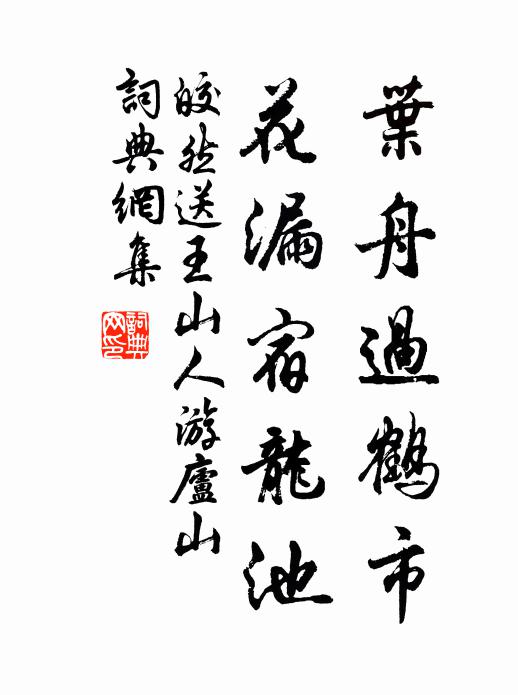 葉舟過鶴市
花漏宿龍池
皎然送王山人游廬山
詞典網集
詞典网印